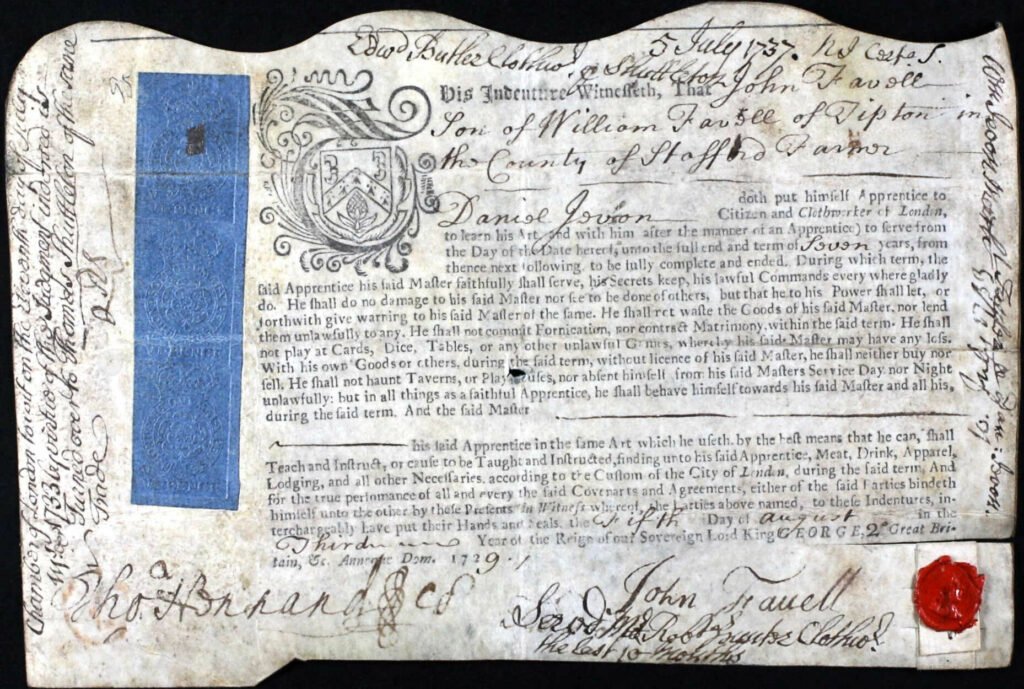 Edwd Butler Clothwr 5 July 1737.
His Indenture Witnesseth, That John Favell
Son of William Favell of Tipton in
the County of Stafford Farmer
doth put himself Apprentice to
Daniel Jevon Citizen and Clothworker of London,
to learn his Art, and with him (after the manner of an Apprentice) to serve from
the Day of the Date hereof, unto the full end and term of Seven years, from
thence next following, to be fully complete and ended. During which term, the
said Apprentice his said Master faithfully shall serve, his Secrets keep, his lawful Commands every where gladly
do. He shall do no damage to his said Master nor see to be done of others, but that he to his Power shall let, or
forthwith give warning to his said Master of the same. He shall not waste the Goods of his said Master, nor lend
them unlawfully to any. He shall not commit Fornication, nor contract Matrimony within the said term. He shall
not play at Cards, Dice, Tables, or any other unlawful Games, whereby his said Master may have any loss.
With his own Goods or others, during the said term, without licence of his said Master, he shall neither buy nor
sell. He shall not haunt Taverns, or Play-houses, nor absent himself from his said Masters Service Day nor Night
unlawfully: but in all things as a faithful Apprentice, he shall behave himself towards his said Master and all his,
during the said term. And the said Master
his said Apprentice in the same Art which he useth, by the best means that he can, shall
Teach and Instruct, or cause to be Taught and Instructed, finding unto his said Apprentice, Meat, Drink, Apparel,
Lodging, and all other Necessaries, according to the Custom of the City of London, during the said term. And
for the true performance of all and every the said Covenants and Agreements, either of the said Parties bindeth
himself unto the other by these Presents. In Witness whereof, the Parties above named, to these Indentures, in-
terchangeably have put their Hands and Seals, the Fifth Day of August in the
Third Year of the Reign of our Sovereign Lord King GEORGE, 2d Great Bri-
tain, &c. Annoque Dom. 1729.
John Favell
Servd
the last 10 months
Chamber of London
1733
Turned over to Thomas Shuttleton of the same
Trade
3 3